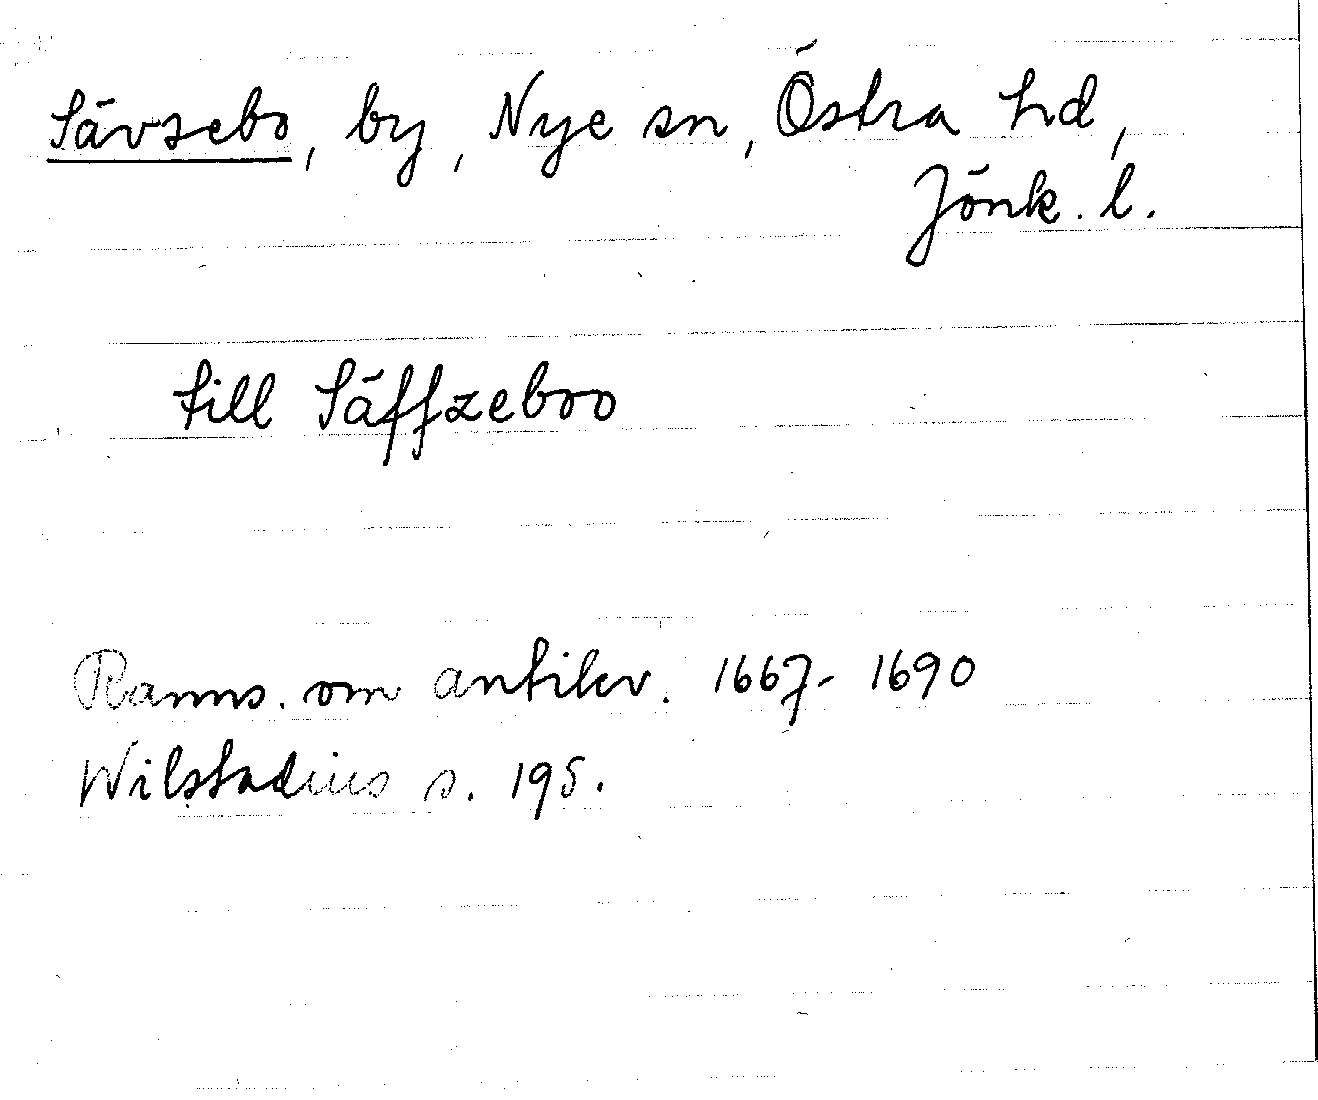 Sävsebo, by, Nye sn, Östra hd,
Jönk. l.
till Säffzeboo
Ranns. om antikv. 1667-1690
Wilstadius s. 195.